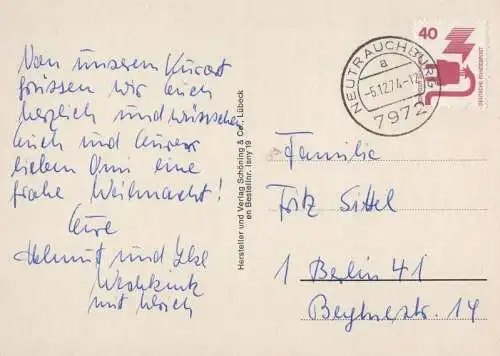 Von unserem Kurort
grüssen wir Euch
herzlich und wünschen
Euch und Eurer
lieben Omi eine
frohe Weihnacht!
Eure
Helmut und Ilse
mit
Hersteller und Verlag Schöning & Co., Lübeck
en Bestellnr. Isny 19
NEUTRAUCHBURG
a
-5.12.74-12
7972
40
DEUTSCHE BUNDESPOST
Familie
Fritz Sittel
1 Berlin 41
14